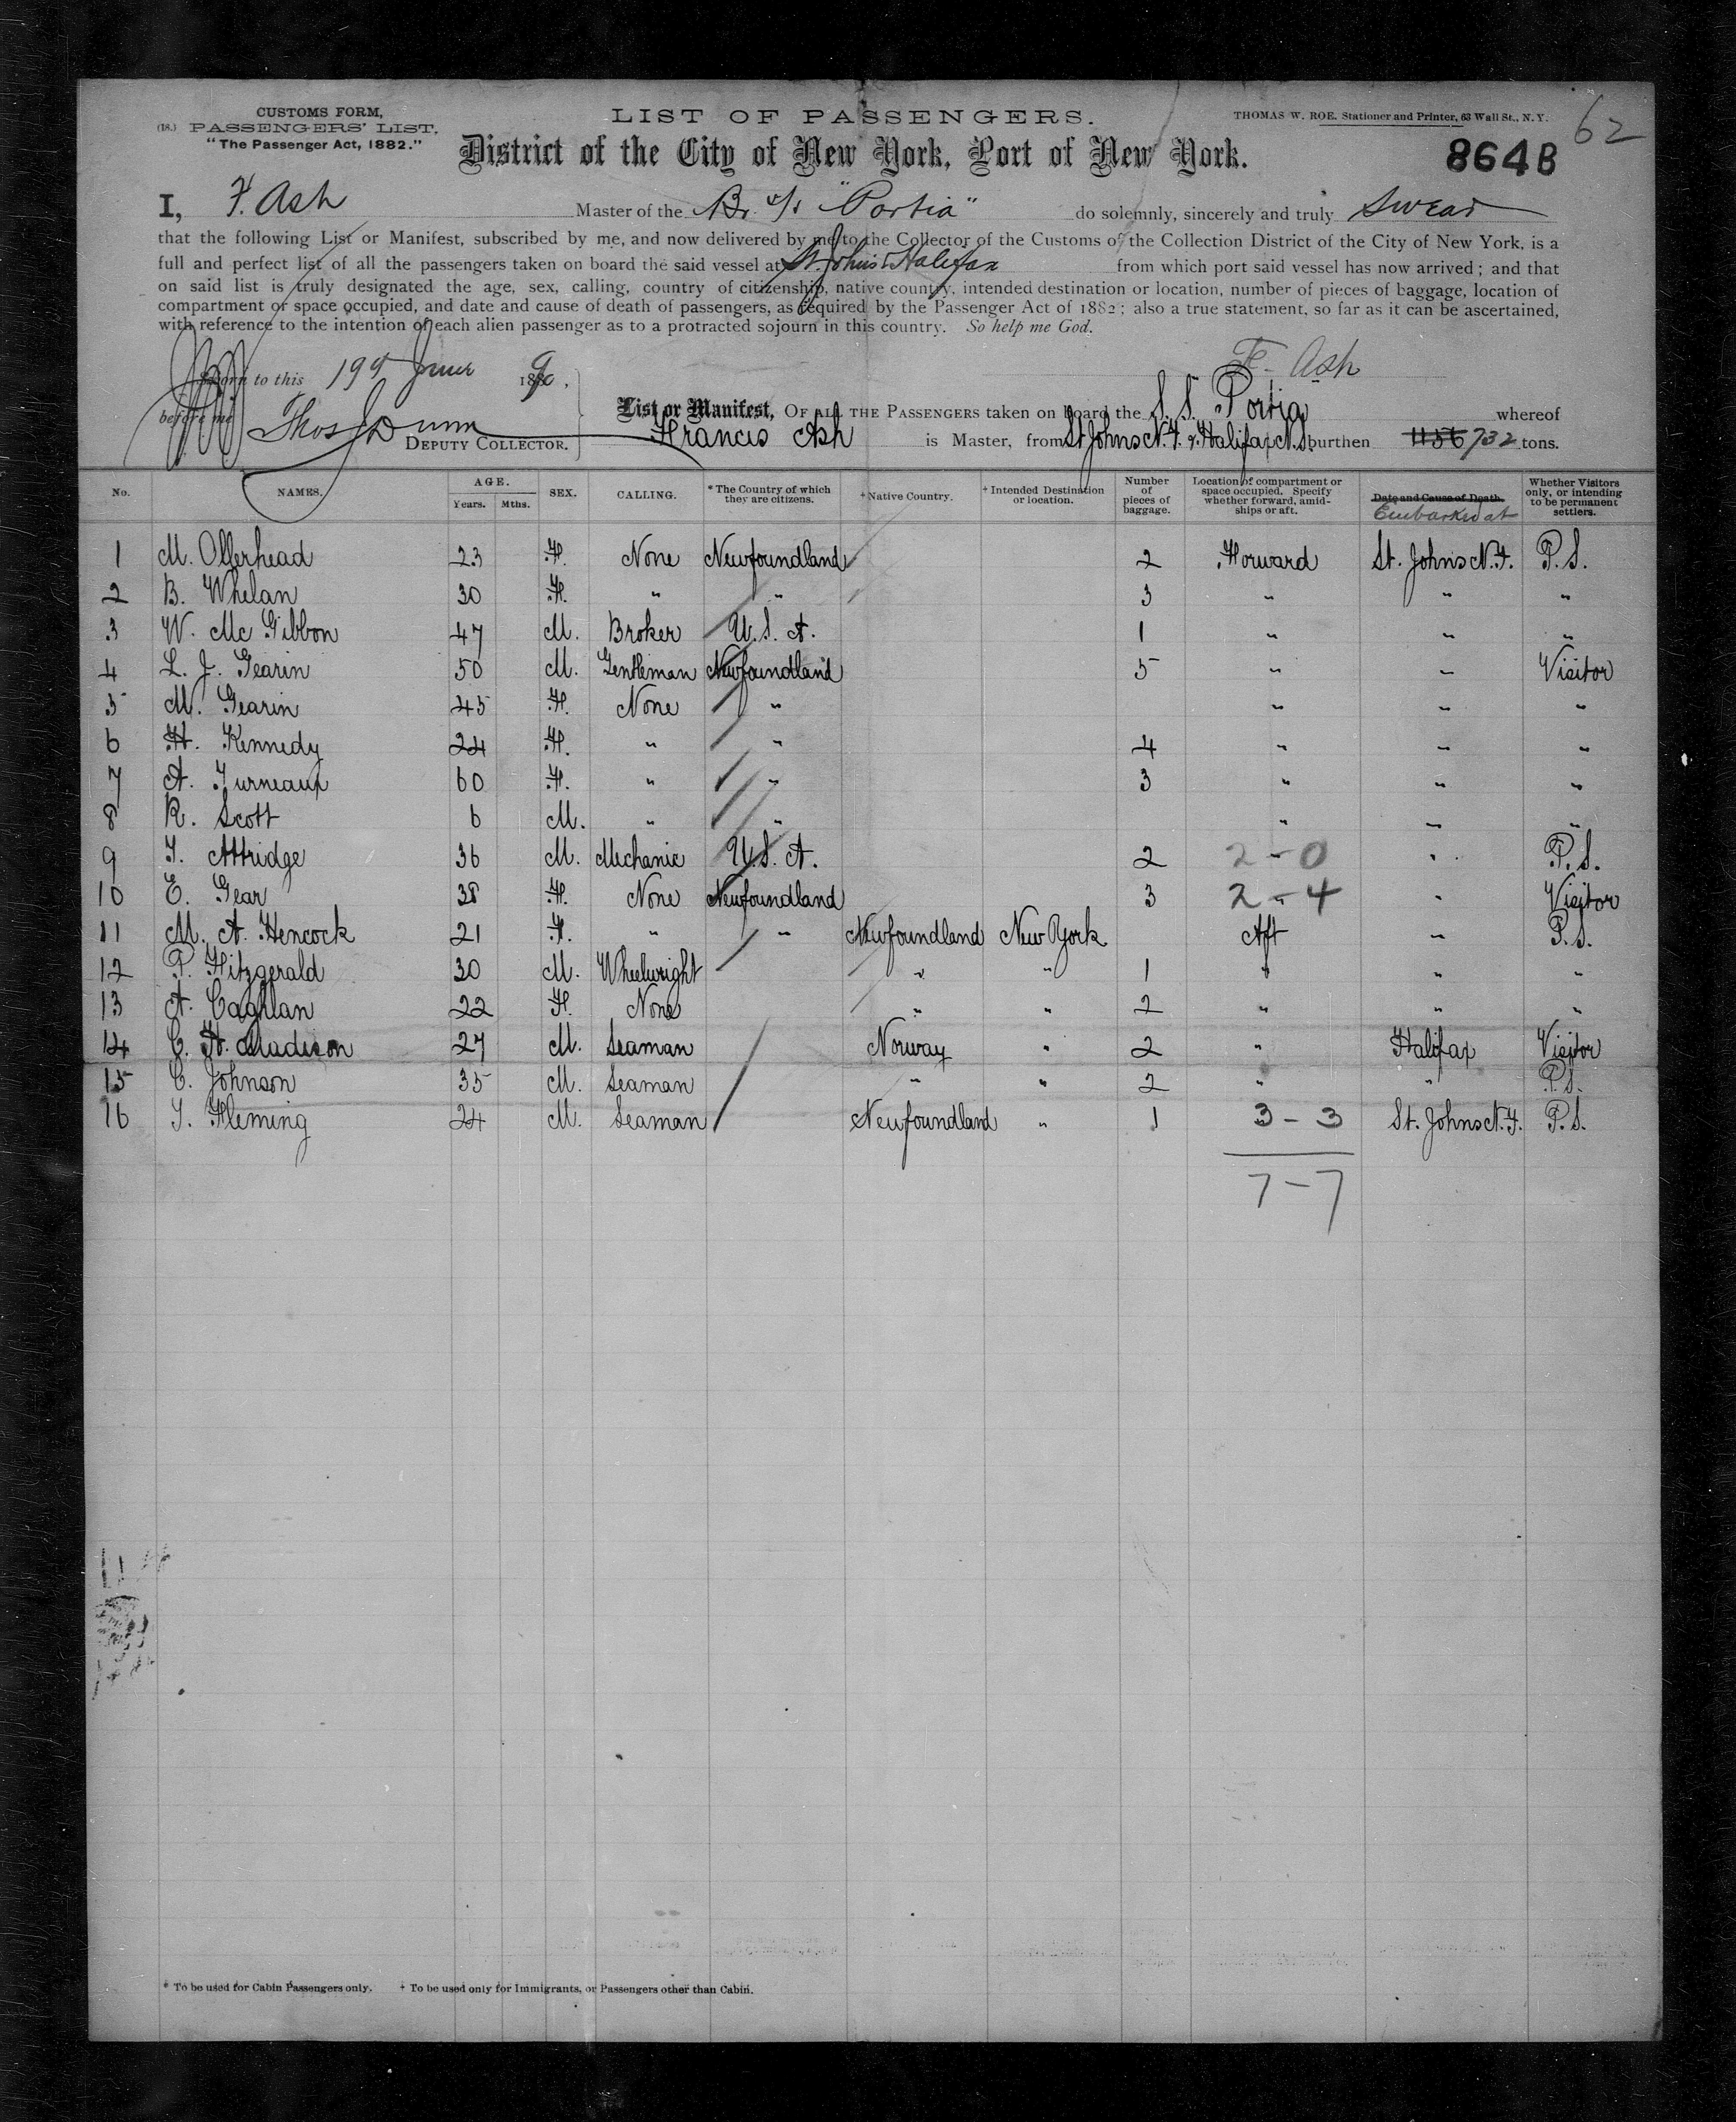 CUSTOMS FORM,
(18.) PASSENGERS' LIST.
"The Passenger Act, 1882."
LIST OF PASSENGERS.
THOMAS W. ROE. Stationer and Printer, 63 Wall St., N.Y.
62
District of the City of New York, Port of New York.
8648
I, F. Ash Master of the Br s/s "Portia" do solemnly, sincerely and truly Swear
that the following List or Manifest, subscribed by me, and now delivered by me to the Collector of the Customs of the Collection District of the City of New York, is a
full and perfect list of all the passengers taken on board the said vessel at St. Johns & Halifax from which port said vessel has now arrived; and that
on said list is truly designated the age, sex, calling, country of citizenship, native country, intended destination or location, number of pieces of baggage, location of
compartment or space occupied, and date and cause of death of passengers, as required by the Passenger Act of 1882; also a true statement, so far as it can be ascertained,
with reference to the intention of each alien passenger as to a protracted sojourn in this country. So help me God.
F. Ash
Sworn to this 19th June 1890,
before me
Thos J Dunn
DEPUTY COLLECTOR.
List or Manifest, OF ALL THE PASSENGERS taken on board the S. S. Portia whereof
Francis Ash is Master, from St Johns N.F. & Halifax N.S. burthen 1156 732 tons.
No. NAMES. AGE. Years. Mths. SEX. CALLING. * The Country of which they are citizens. + Native Country. + Intended Destination or location. Number of pieces of baggage. Location of compartment or space occupied. Specify whether forward, amidships or aft. Date and Cause of Death. Embarked at Whether Visitors only, or intending to be permanent settlers.
1 M. Ollerhead 23 F. None Newfoundland 2 Forward St. Johns N.F. P.S.
2 B. Whelan 30 F. " " 3 " " "
3 W. Mc Gibbon 47 M. Broker U.S.A. 1 " " "
4 L. J. Gearin 50 M. Gentleman Newfoundland 5 " " Visitor
5 M. Gearin 45 F. None " " " "
6 H. Kennedy 24 F. " " 4 " " "
7 A. Furneaux 60 F. " " 3 " " "
8 R. Scott 6 M. " " " " "
9 T. Attridge 36 M. Mechanic U.S.A. 2 2-0 " P.S.
10 E. Gear 38 F. None Newfoundland 3 2-4 " Visitor
11 M. A. Hencock 21 F. " " Newfoundland New York Aft " P.S.
12 P. Fitzgerald 30 M. Wheelwright " " 1 " " "
13 A. Caghlan 22 F. None " " 2 " " "
14 C. H. Madison 27 M. Seaman Norway " 2 " Halifax Visitor
15 C. Johnson 35 M. Seaman " " 2 " " P.S.
16 T. Fleming 24 M. Seaman Newfoundland " 1 3-3 St. Johns N.F. P.S.
7-7
* To be used for Cabin Passengers only. + To be used only for Immigrants, or Passengers other than Cabin.